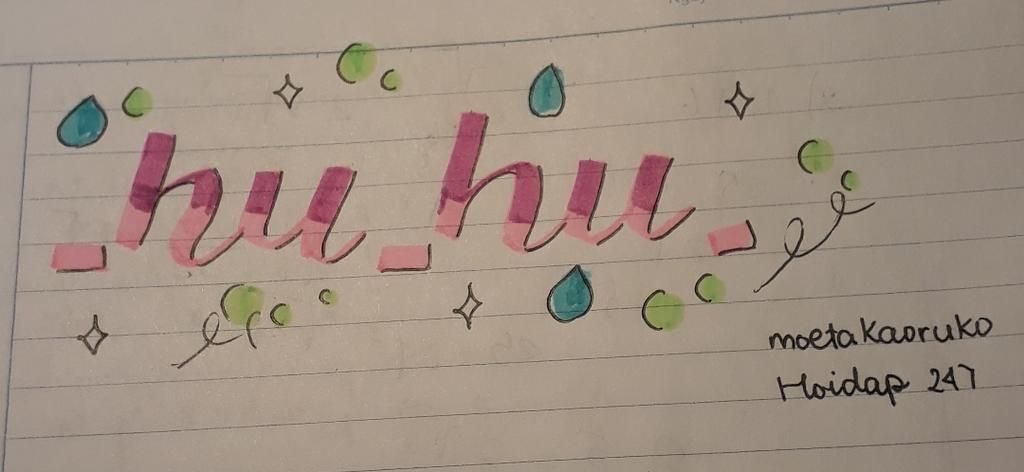 _hu_hu_
moetakaoruko
Hoidap 247